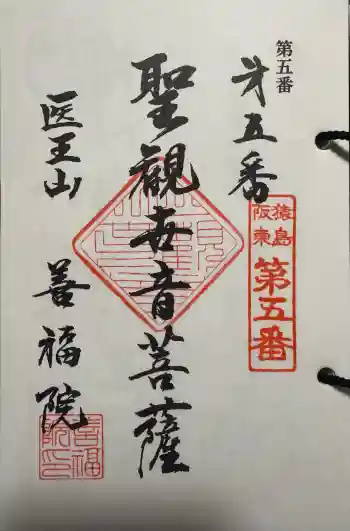 第五番
才五番
猿島
阪東
第五番
聖観世音菩薩
医王山 善福院
善福
院印